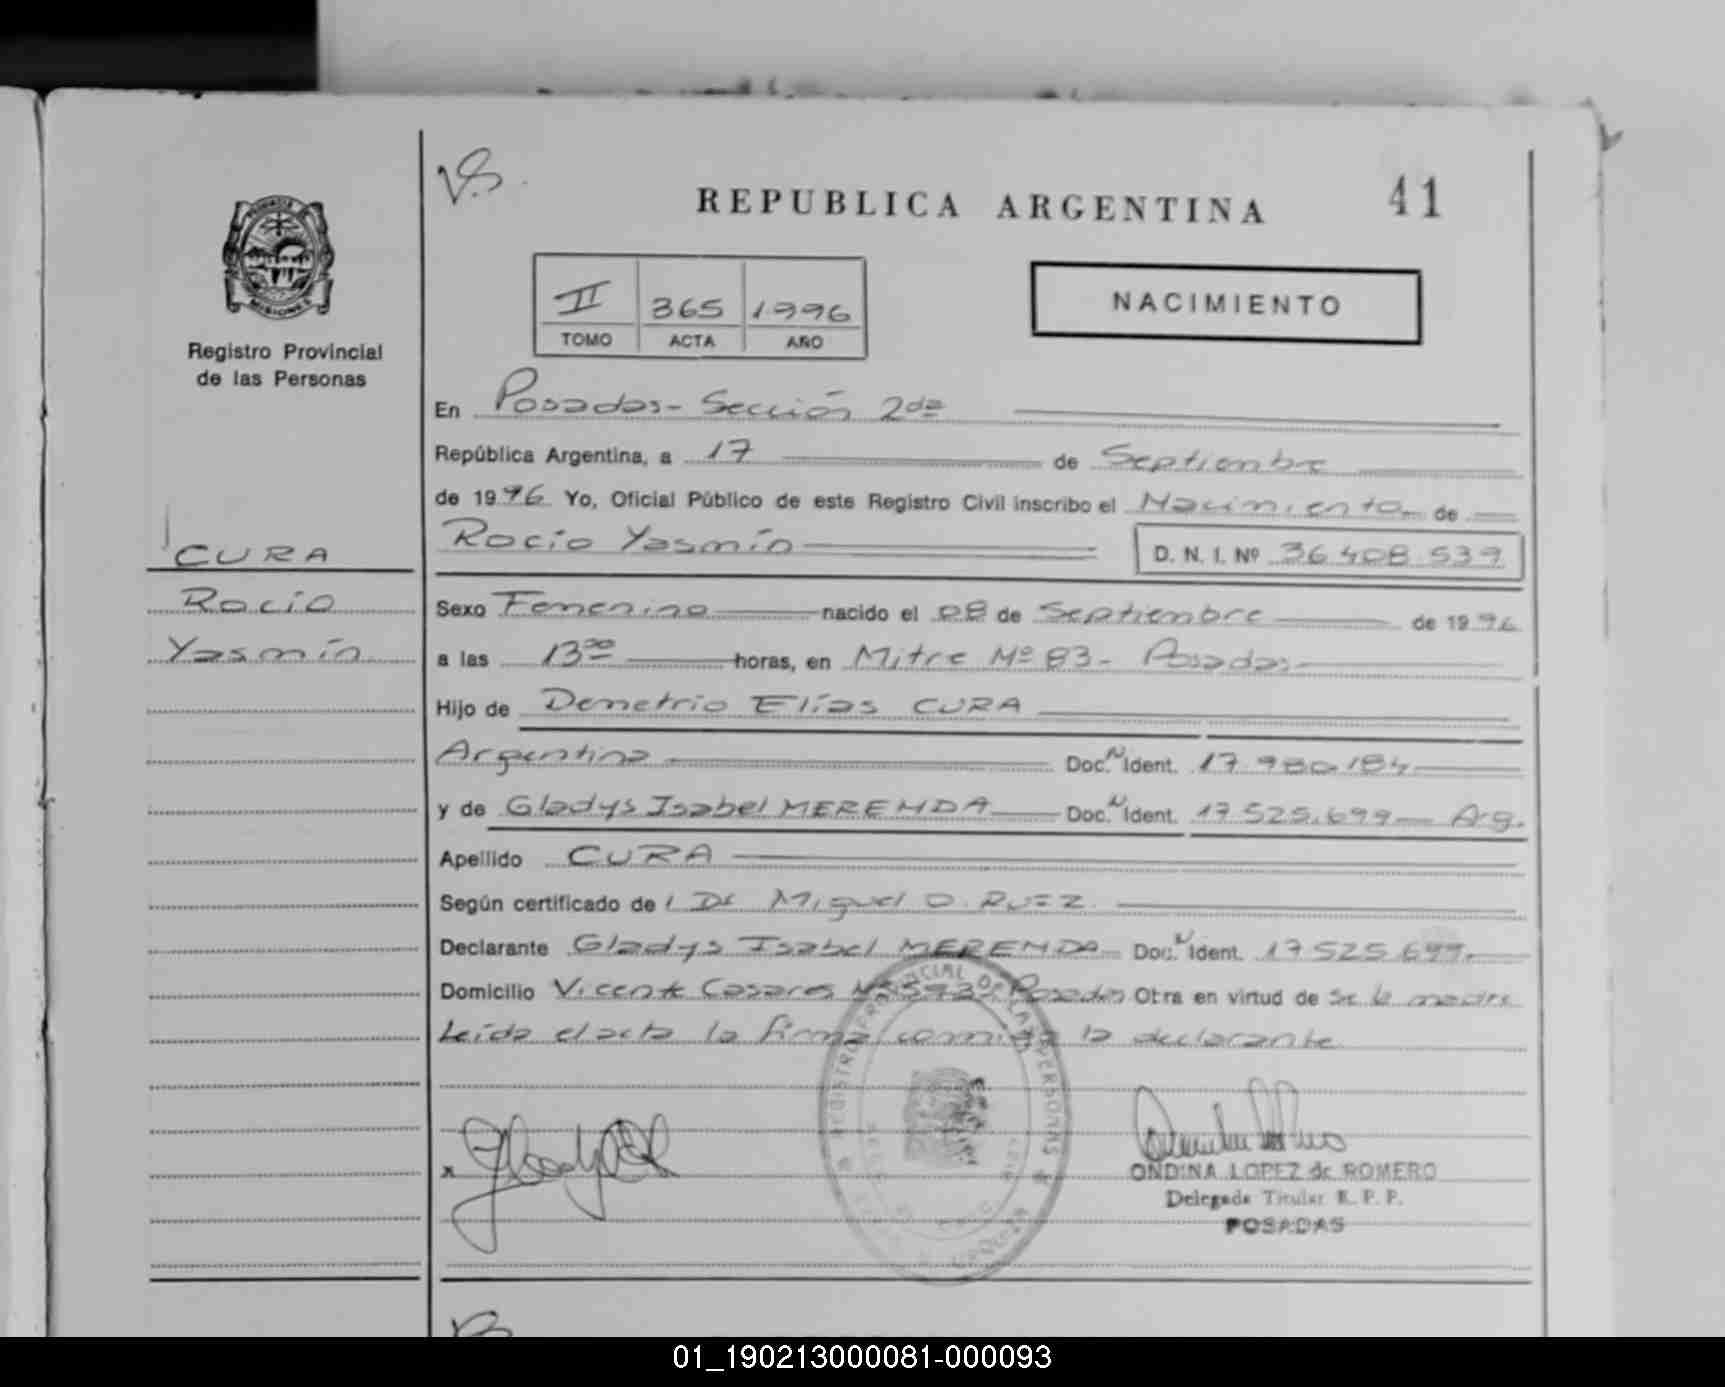 V.B.
REPUBLICA ARGENTINA
41
MISIONES
Registro Provincial
de las Personas
II 365 1996
TOMO ACTA AÑO
NACIMIENTO
En Posadas - Sección 2da
República Argentina, a 17 de Septiembre
de 1996 Yo, Oficial Público de este Registro Civil inscribo el Nacimiento de
Rocío Yasmín D. N. I. Nº 36.408.539
CURA
Rocío
Yasmín
Sexo Femenino nacido el 08 de Septiembre de 1996
a las 13 00 horas, en Mitre Nº 83 - Posadas
Hijo de Demetrio Elías CURA
Argentino Doc. N Ident. 17.980.184
y de Gladys Isabel MERENDA Doc. N Ident. 17.525.699 Arg.
Apellido CURA
Según certificado de Dr Miguel O. RUEZ.
Declarante Gladys Isabel MERENDA Doc. N Ident. 17.525.699
Domicilio Vicente Casares Posadas Otra en virtud de Se la madre
Leída el acta la firma conmigo la declarante
REGISTRO PROVINCIAL DE LAS PERSONAS
x
ONDINA LOPEZ de ROMERO
Delegada Titular R. P. P.
POSADAS
01_190213000081-000093